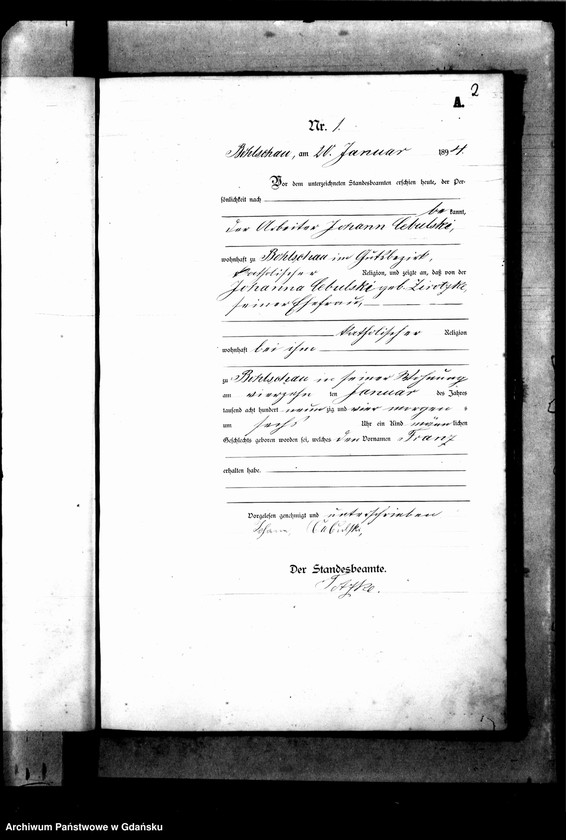 A.
2
Nr. 1.
Bohlschau, am 20. Januar 1894.
Vor dem unterzeichneten Standesbeamten erschien heute, der Per-
sönlichkeit nach
be kannt,
der Arbeiter Johann Cebulski,
wohnhaft zu Bohlschau im Gutsbezirk,
katholischer Religion, und zeigte an, daß von der
Johanna Cebulski geb.
seiner Ehefrau,
katholischer Religion
wohnhaft bei ihm
zu Bohlschau in seiner Wohnung
am vierzehn ten Januar des Jahres
tausend acht hundert neun zig und vier morgens
um sechs Uhr ein Kind männlichen
Geschlechts geboren worden sei, welches den Vornamen Franz
erhalten habe.
Vorgelesen genehmigt und unterschrieben
Johann Cebulski,
Der Standesbeamte.
Archiwum Państwowe w Gdańsku